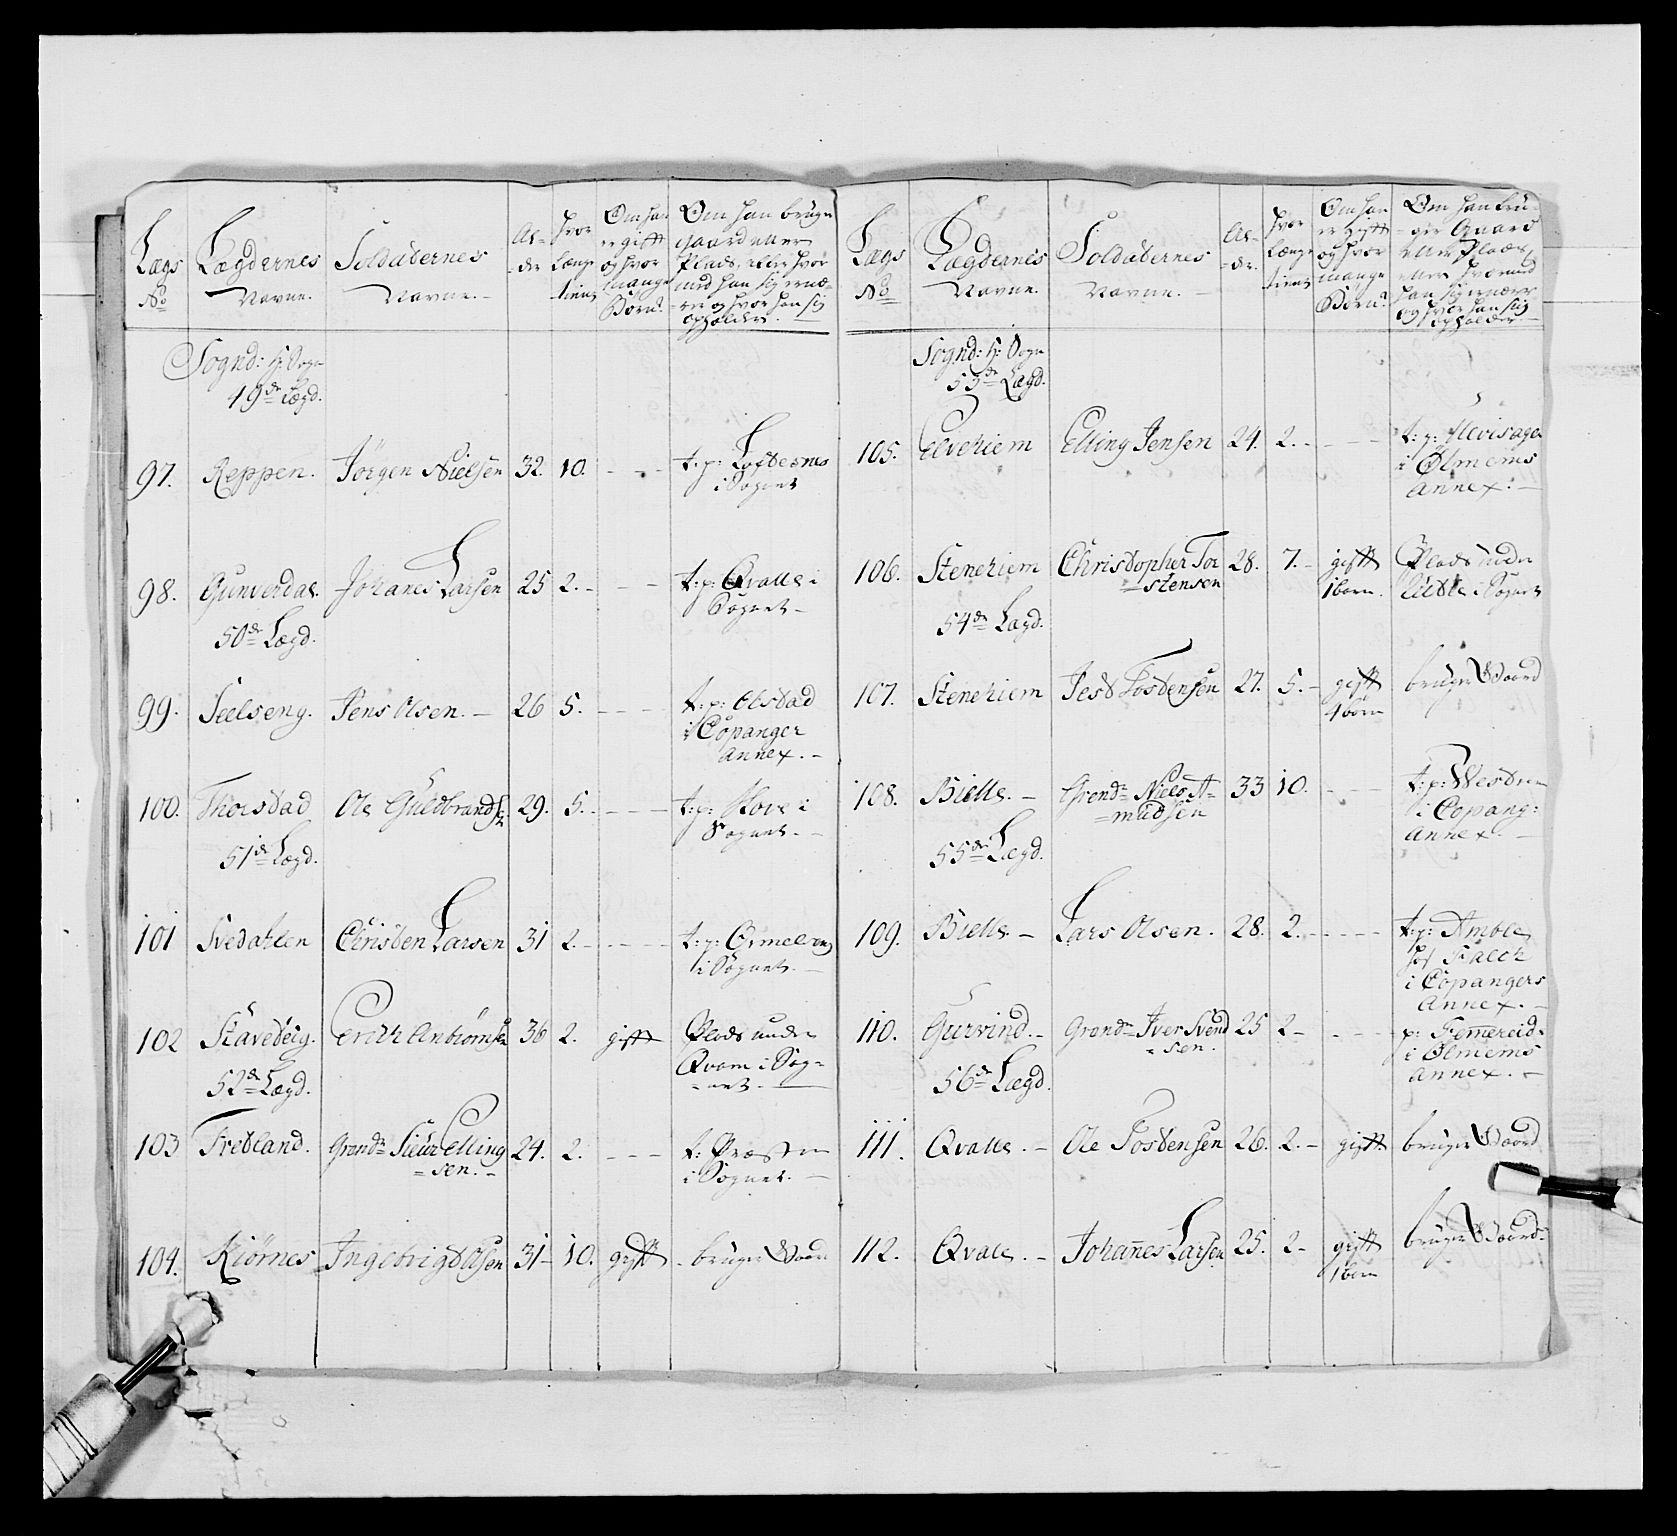 Lægs
No
Lægdernes
Navne.
Soldaternes
Navne.
Al-
-der
hvor
længe
tient
Om han
er gift
og hvor
mange
Børn?
Om han bruger
gaard eller
Plads, eller hvor
med han sig ernæ-
-rer og hvor han sig
opholder.
Sognd: H: Sogn
49de Lægd.
97. Reppen. Jörgen Nielsen 32. 10. - - - t: p: Loftesnes
i Sognet
98. Gunverdal. Johanes Larsen 25 2. - - - t: p: Qvalle i
Sognet -
50de Lægd.
99. Seelseng. Jens Olsen. - 26 5. - - - t: p: Olstad
i Copanger
Annex. -
100. Thorstad Ole Guldbrands: 29. 5. - - - t: p: Hove i
Sognet. -
51de Lægd.
101 Svedahlen Christen Larsen 31 2. - - - t: p: Ormelren
i Sognet. -
102 Stavedeig. Erich 36 2. gift Plads under
Qvam i Sog-
-net.
52de Lægd.
103 Fretland. Grend: Siur Elling
-sen. - 24. 2. - - - t: Præsten
i Sognet. -
104. Kiörnes Ingebrigt Olsen 31 - 10. gift - bruger Gaard
Lægs
No
Lægdernes
Navne.
Soldaternes
Navne. -
Al-
-der.
hvor
længe
tient
Om han
er gift
og hvor
mange
Børn?
Om han bru-
-ger Gaard
eller Plads,
eller hvormed
han sig ernærer
og hvor han sig
opholder.
Sognd: H: Sogn
53de Lægd.
105. Elvehiem Elling Jensen 24. 2. - - - t: p:
i Ölmems
Annex. -
106. Stenehiem Christopher Tor
-stensen 28. 7. - gift
1 barn. Plads under
i Sognet
54de Lægd.
107. Stenehiem Jest Tostensen 27. 5. - gift
4 börn bruger Gaard
108. Bielle. - Grend: Niels A-
-mudsen 33 10. - - - t: p: Westrem
i Copang:
Annex. -
55de Lægd.
109. Bielle. - Lars Olsen. 28. 2. - - - t: p: Amble
hos Falch
i Copangers
Annex. -
110. Gurvind. - Grend: Iver Svend
-sen. 25 2 - - - - p: Femereid
i Ölmems
Annex. -
56de Lægd.
111. Qvalle. - Ole Tostensen 26. 2. - gift. bruger Gaard
112. Qvale. - Johannes Larsen 25. 2 - gift
1 barn bruger Gaard.